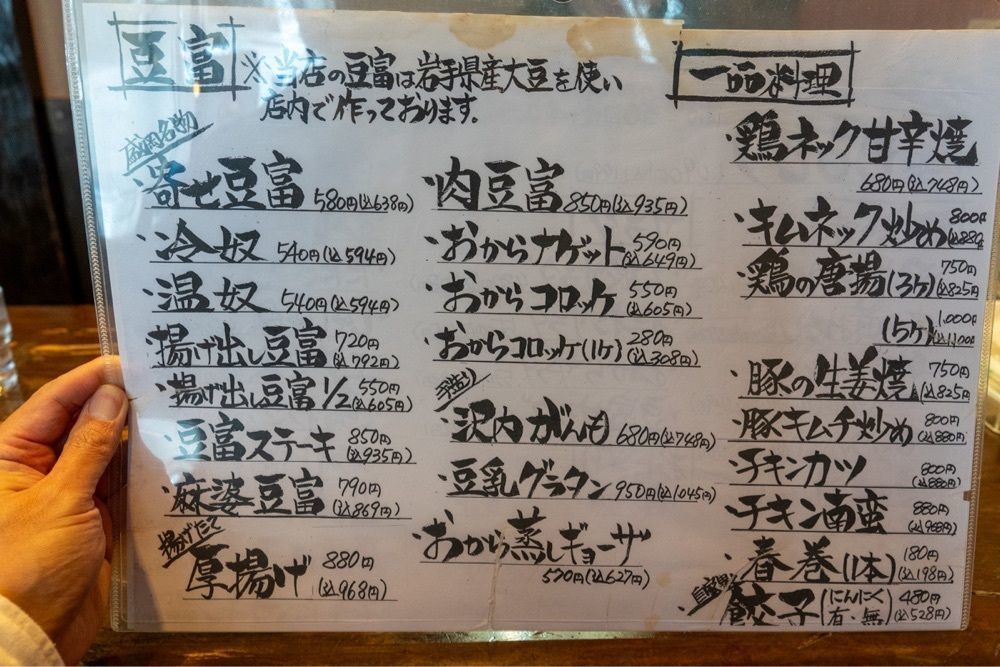 豆富
※当店の豆富は岩手県産大豆を使い
店内で作っております。
盛岡名物
・寄せ豆富 580円(込638円)
・冷奴 540円(込594円)
・温奴 540円(込594円)
・揚げ出し豆富 720円(込792円)
・揚げ出し豆富1/2 550円(込605円)
・豆富ステーキ 850円(込935円)
・麻婆豆富 790円(込869円)
揚げたて
・厚揚げ 880円(込968円)
・肉豆富 850円(込935円)
・おからナゲット 590円(込649円)
・おからコロッケ 550円(込605円)
・おからコロッケ(1ケ) 280円(込308円)
手造り
・沢内がんも 680円(込748円)
・豆乳グラタン 950円(込1045円)
・おから蒸しギョーザ
570円(込627円)
一品料理
・鶏ネック甘辛焼
680円(込748円)
・キムネック炒め 800円(込880
・鶏の唐揚(3ケ) 750円(込825
(5ケ) 1,000円(込1,100
・豚の生姜焼 750円(込825
・豚キムチ炒め 800円(込880円)
・チキンカツ 800円(込880円)
・チキン南蛮 880円(込968円)
・春巻(1本) 180円(込198円)
・餃子(にんにく有・無) 480円(込528円)